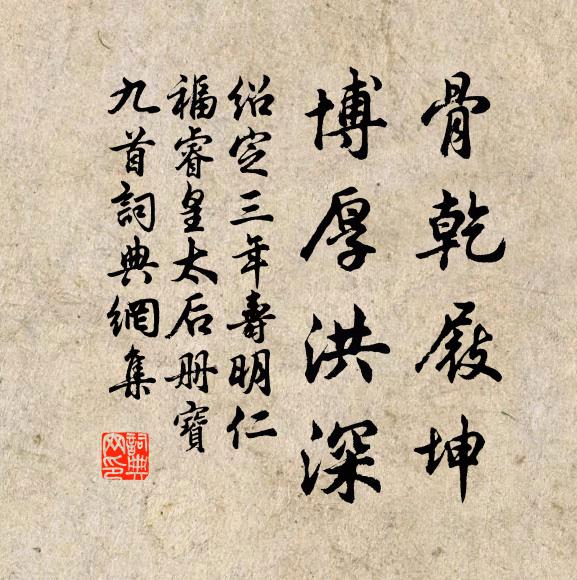 骨乾殿坤
博厚洪深
紹定三年壽明仁
福睿皇太后册寶
九首詞典網集
詞典网印